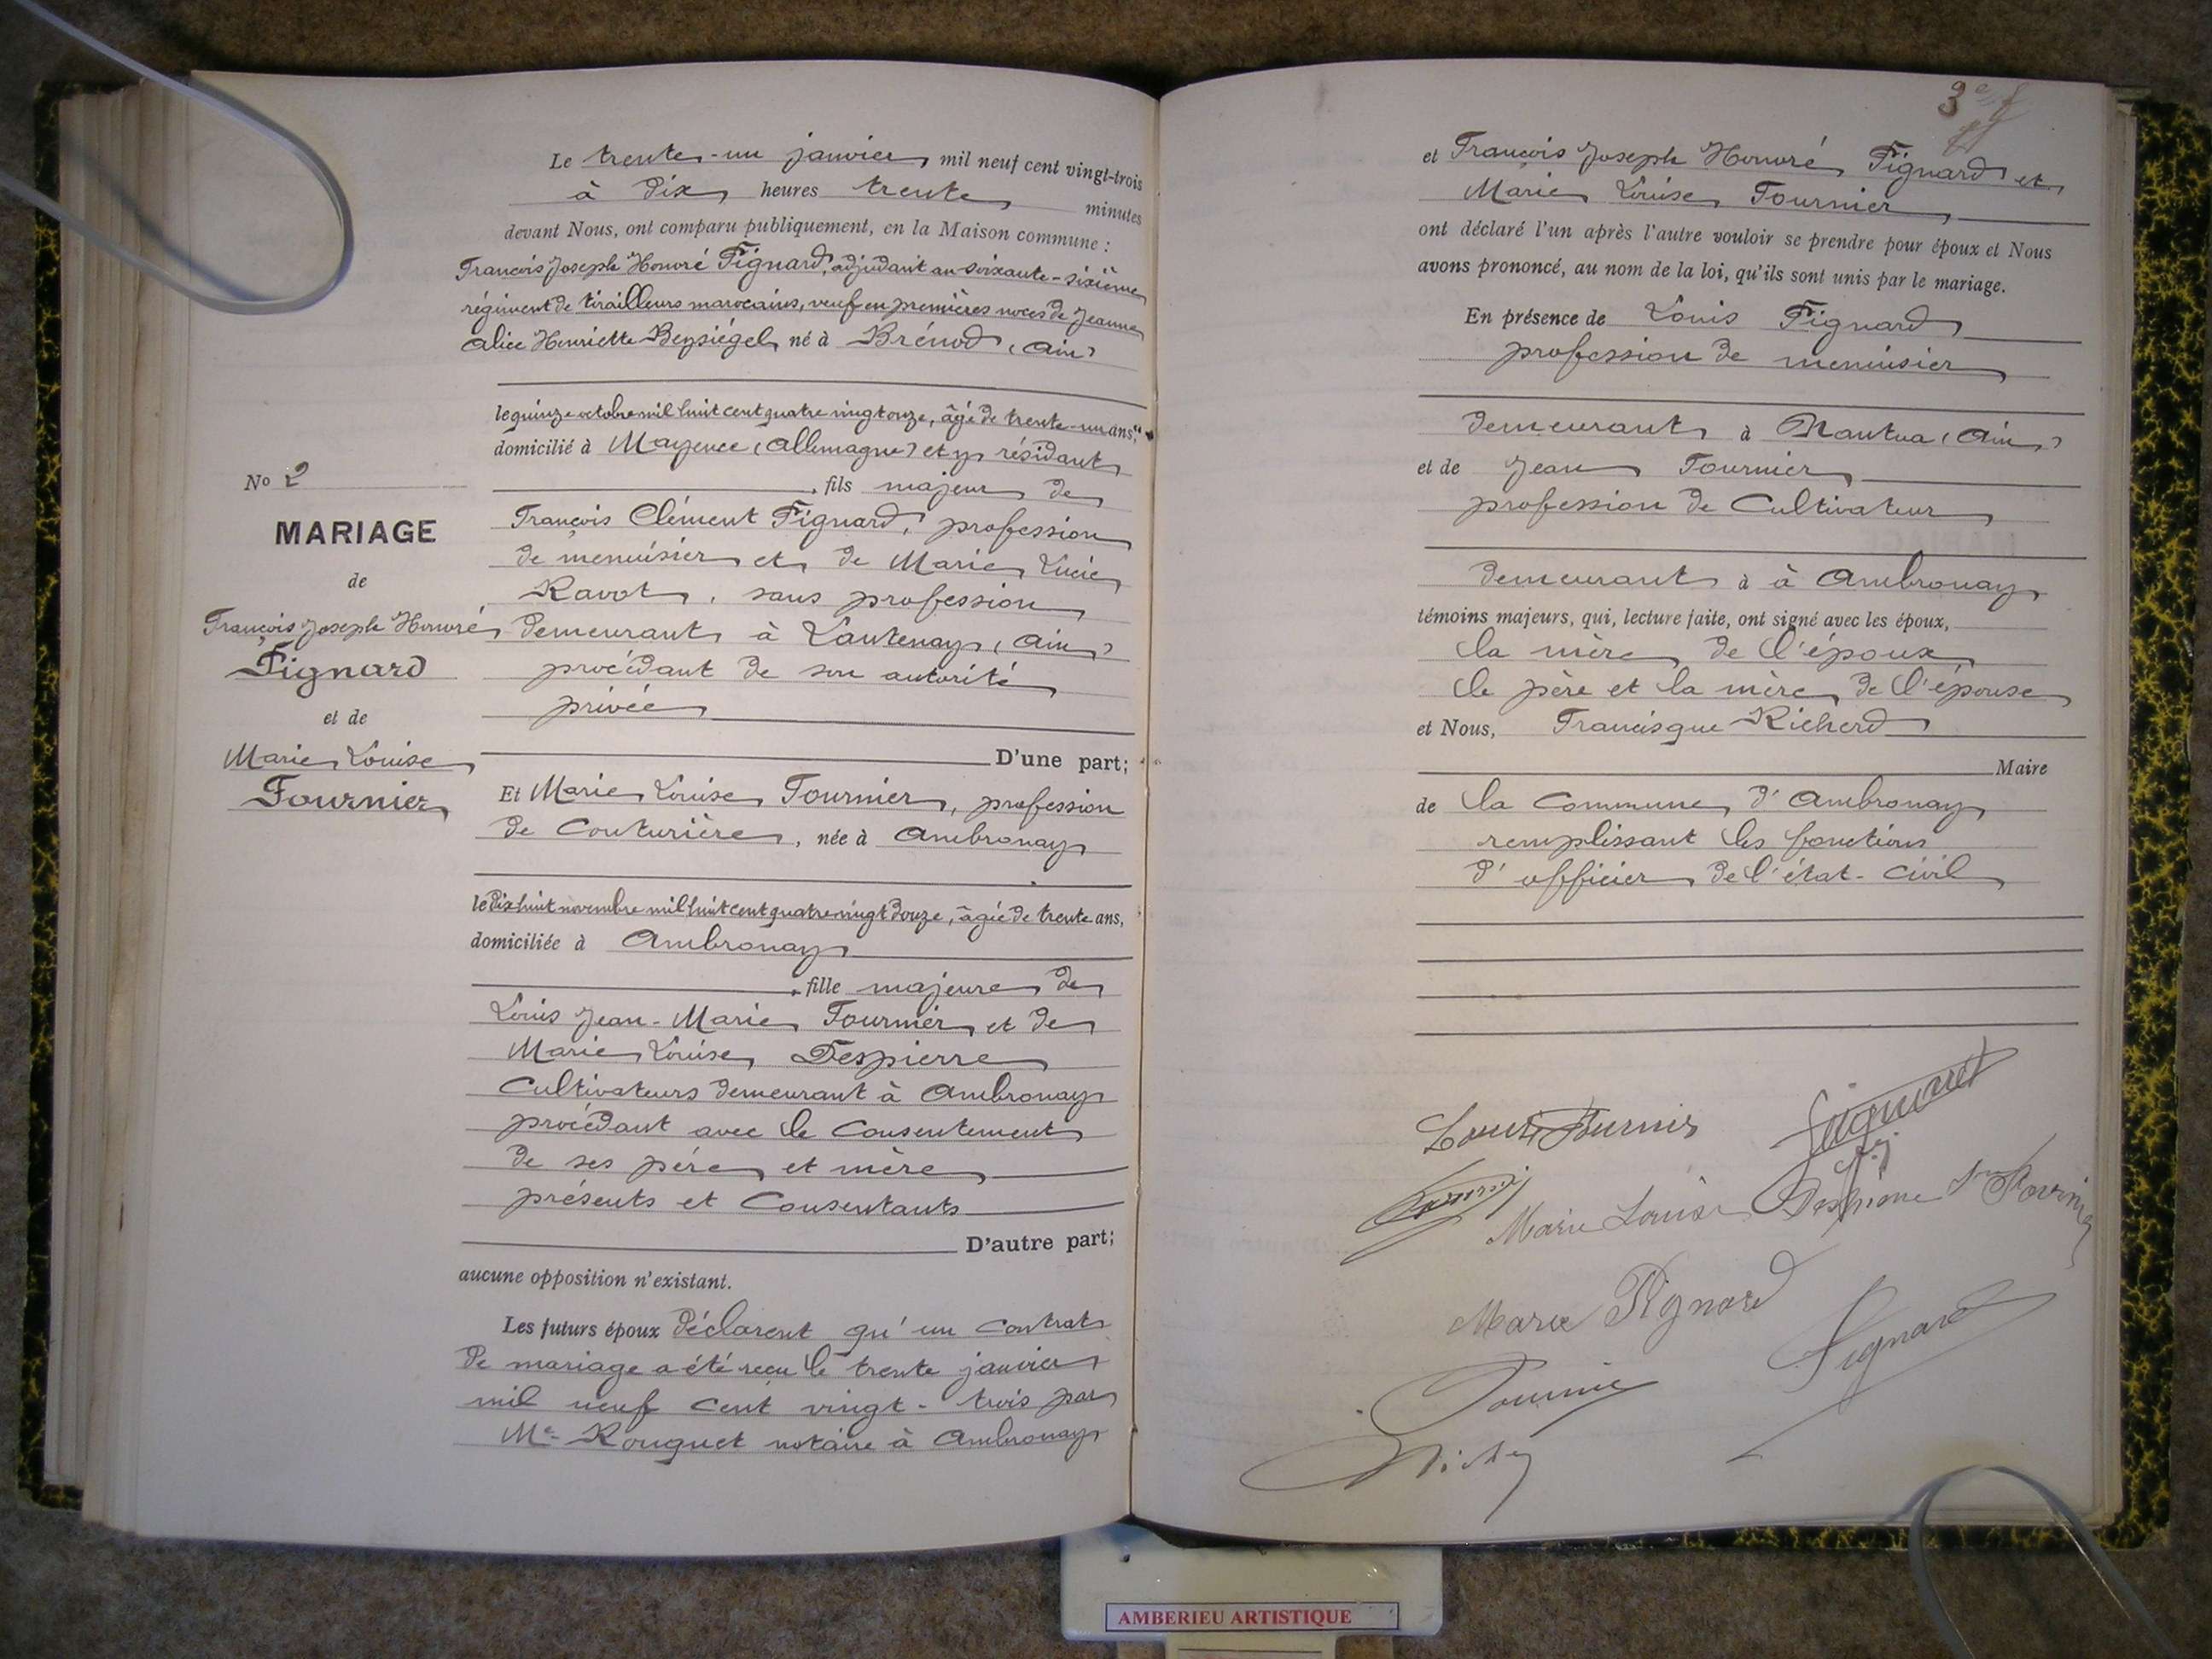 Le trente-un janvier mil neuf cent vingt-trois
à dix heures trente minutes
devant Nous, ont comparu publiquement, en la Maison commune :
François Joseph Honoré Fignard, adjudant au soixante-sixième
régiment de tirailleurs marocains, veuf en premières noces de Jeanne
Alice Henriette Beysiégel né à Brénod (Ain)
le quinze octobre mil huit cent quatre vingt onze, âgé de trente-un ans,
domicilié à Mayence (Allemagne) et y résidant
, fils majeur de
François Clément Fignard, profession
de menuisier et de Marie Lucie
Ravot, sans profession
demeurant à Lantenay (Ain)
procédant de son autorité
privée
D'une part;
No 2
MARIAGE
de
François Joseph Honoré
Fignard
et de
Marie Louise
Fournier
Et Marie Louise Fournier, profession
de Couturière, née à Ambronay
le dix huit novembre mil huit cent quatre vingt douze, âgée de trente ans,
domiciliée à Ambronay
, fille majeure de
Louis Jean-Marie Fournier et de
Marie Louise Despierre
Cultivateurs demeurant à Ambronay
procédant avec le Consentement
de ses père et mère
présents et Consentants
D'autre part;
aucune opposition n'existant.
Les futurs époux déclarent qu'un Contrat
de mariage a été reçu le trente janvier
mil neuf cent vingt-trois par
Me Rouguet notaire à Ambronay
3e
et François Joseph Honoré Fignard et
Marie Louise Fournier
ont déclaré l'un après l'autre vouloir se prendre pour époux et Nous
avons prononcé, au nom de la loi, qu'ils sont unis par le mariage.
En présence de Louis Fignard
profession de menuisier
demeurant à Nantua (Ain)
et de Jean Fournier
profession de Cultivateur
demeurant à à Ambronay
témoins majeurs, qui, lecture faite, ont signé avec les époux,
la mère de l'époux
le père et la mère de l'épouse
et Nous, Francisque Richerd
Maire
de la Commune d'Ambronay
remplissant les fonctions
d'officier de l'état-civil
Louise Fournier
Fignard
Marie Louise Despierre
Marie Fignard
Fignard
AMBERIEU ARTISTIQUE